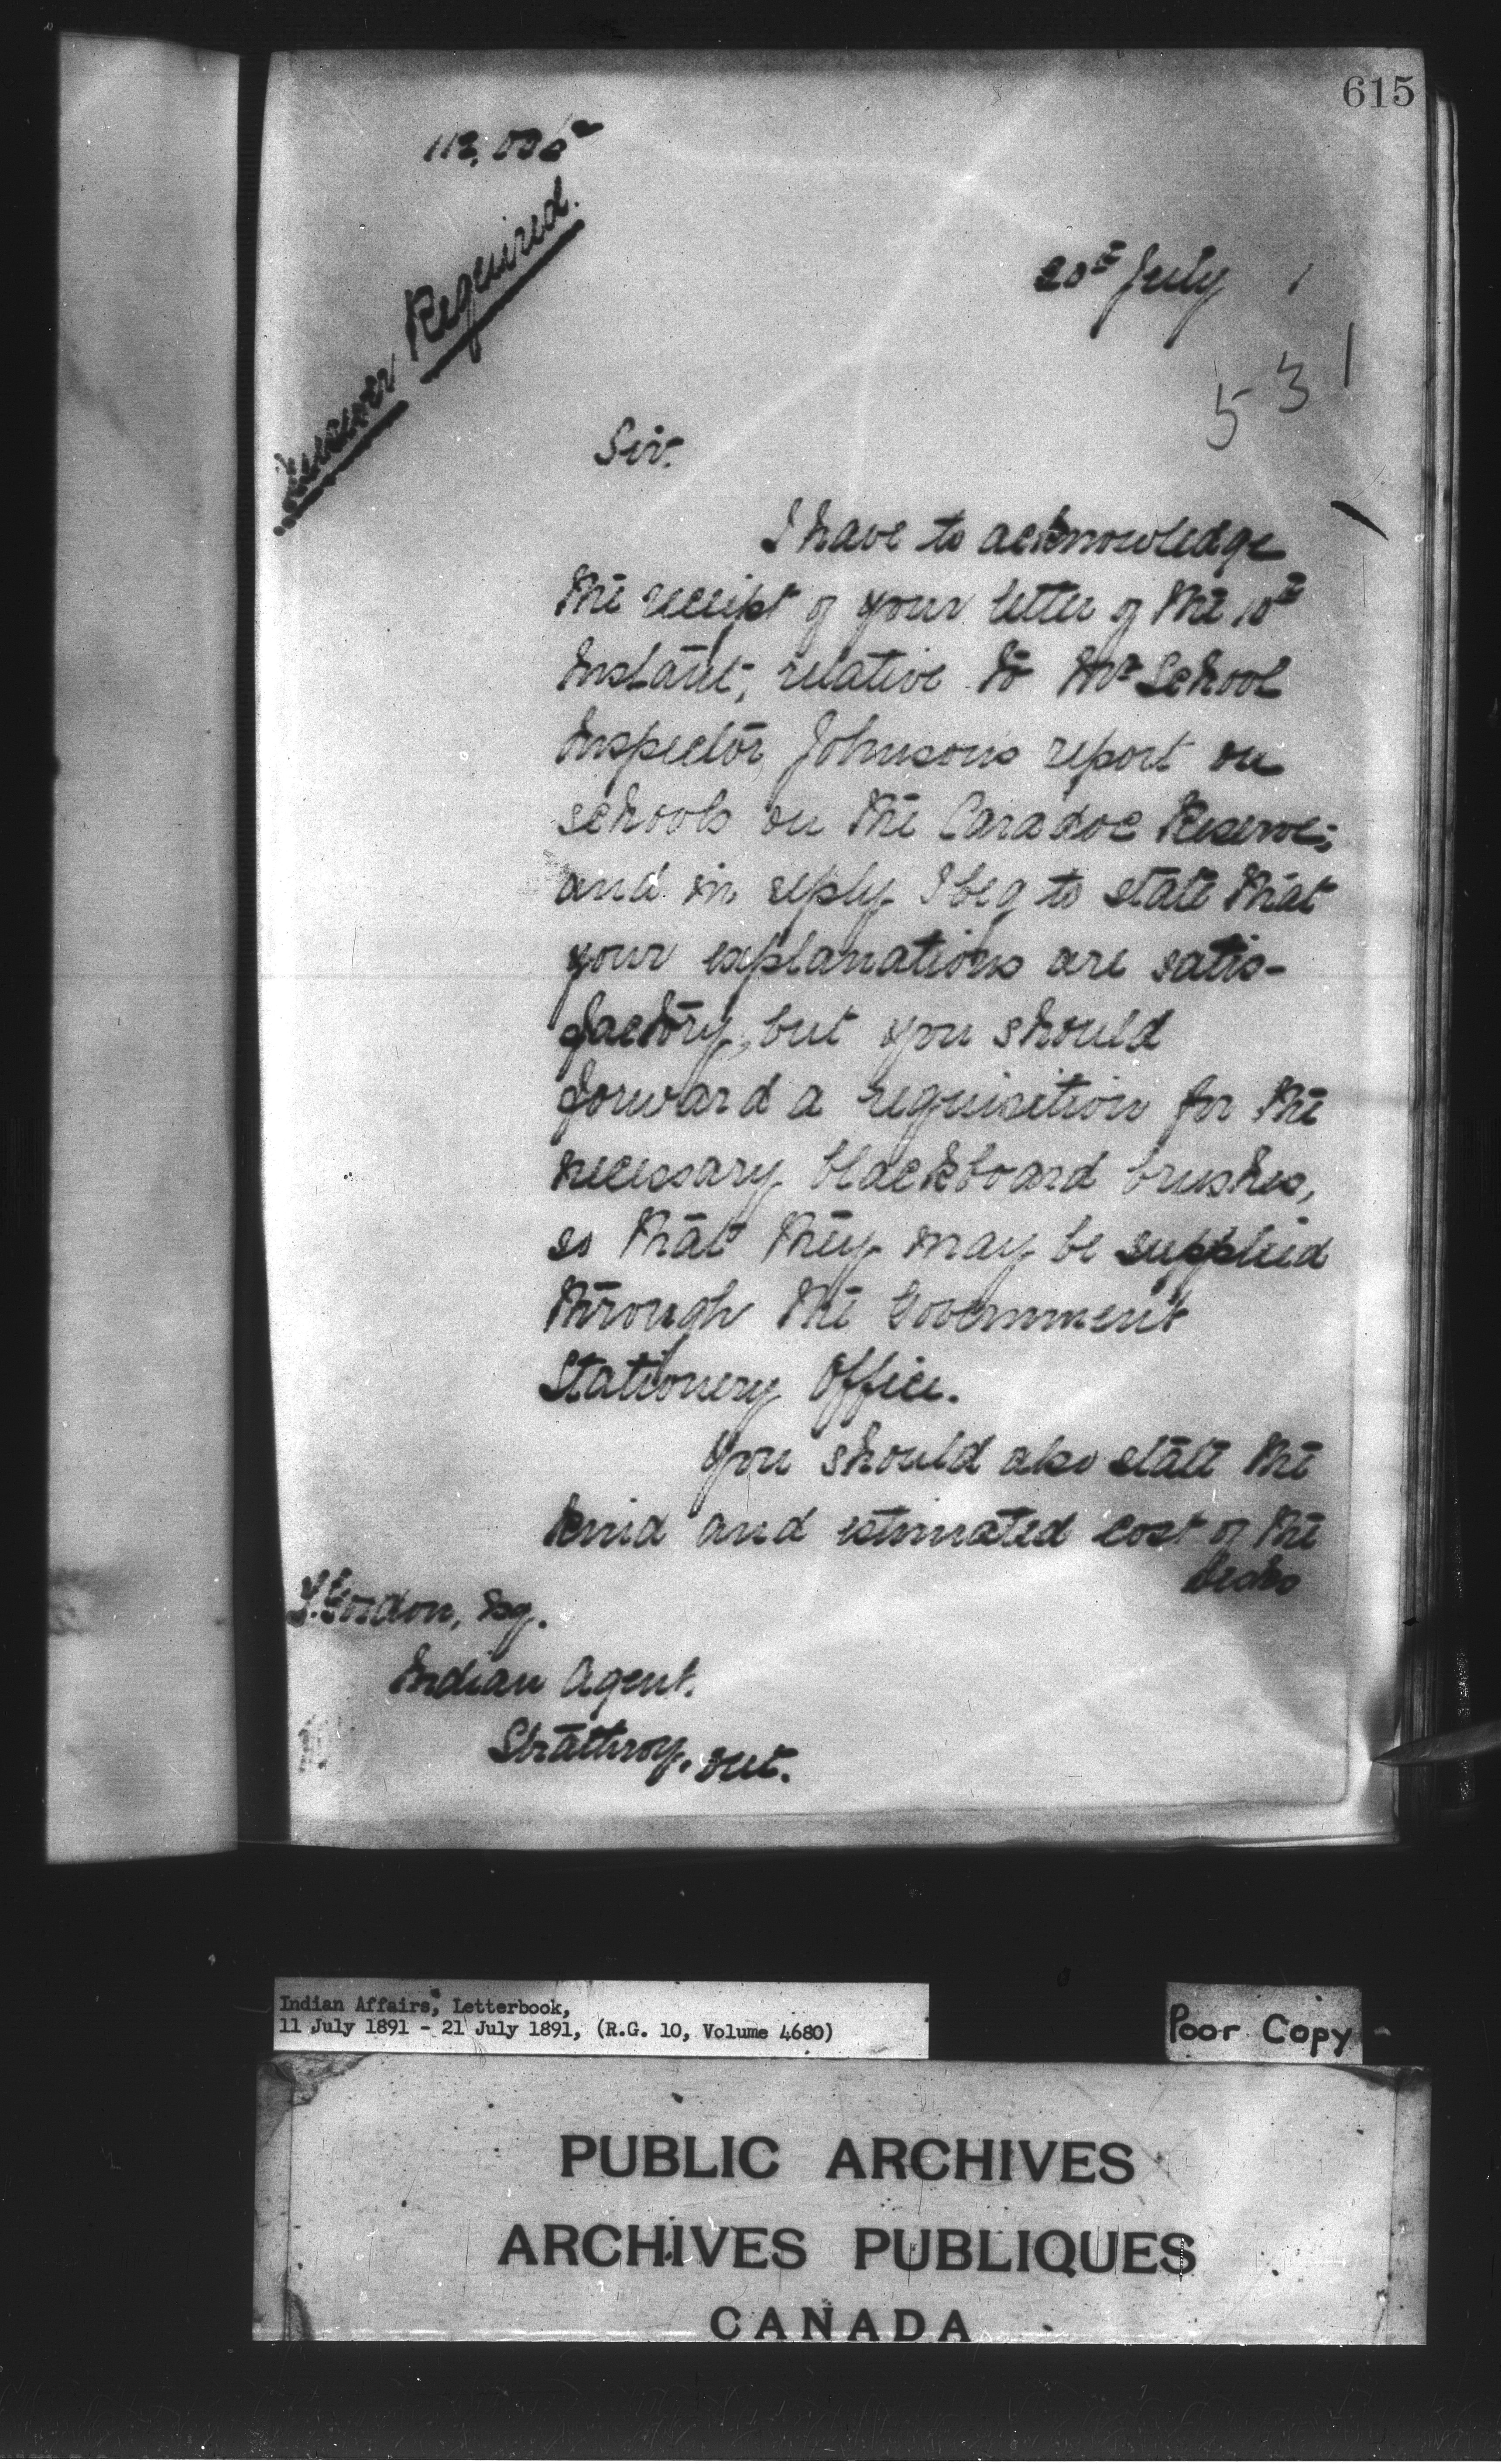 615
Answer Required.
20th July 1
531
Sir.
I have to acknowledge
the receipt of your letter of the 10th
Instant, relative to Mr School
Inspector Johnsons report on
schools on the Caradoc Reserve;
and in reply I beg to state that
your explanations are satis-
factory, but you should
forward a requisition for the
necessary blackboard brushes,
so that they may be supplied
through the Government
Stationery Office.
You should also state the
kind and estimated cost of the
desks
Gordon, Esq.
Indian Agent.
Strathroy, Ont.
Indian Affairs, Letterbook,
11 July 1891 - 21 July 1891, (R.G. 10, Volume 4680)
Poor Copy
PUBLIC ARCHIVES
ARCHIVES PUBLIQUES
CANADA